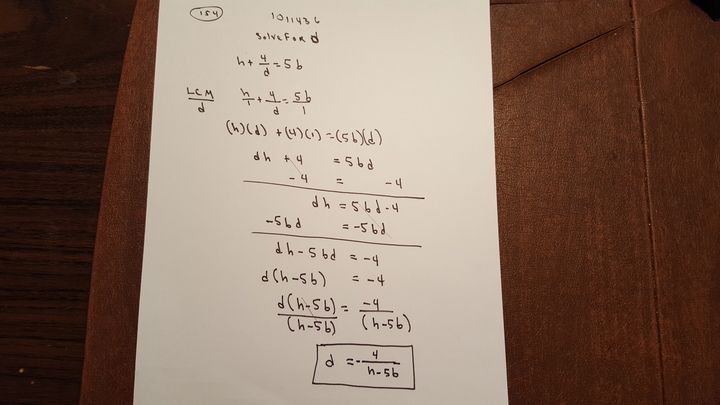 154
1011436
solve for d
h + 4/d = 5b
LCM/d h/1 + 4/d = 5b/1
(h)(d) + (4)(1) = (5b)(d)
dh + 4 = 5bd
-4 = -4
dh = 5bd - 4
-5bd = -5bd
dh - 5bd = -4
d(h-5b) = -4
d(h-5b)/(h-5b) = -4/(h-5b)
d = -4/h-5b